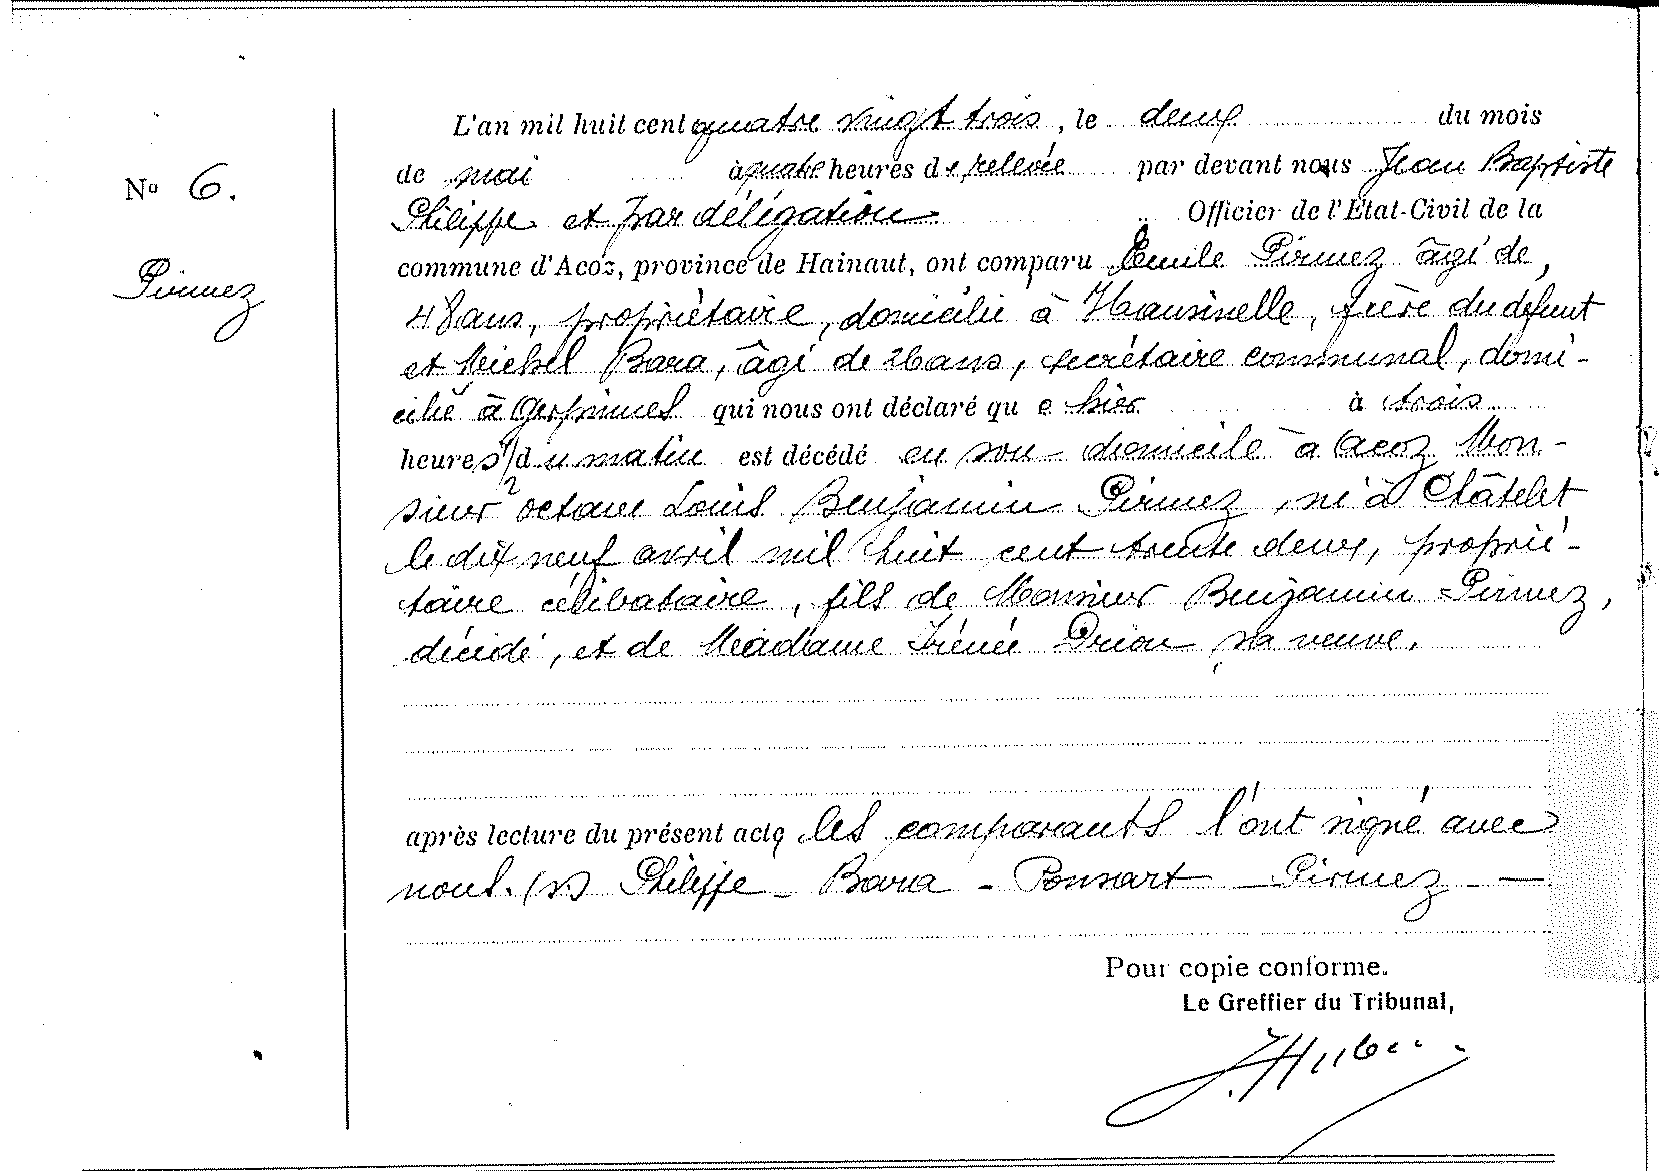 L'an mil huit cent quatre vingt trois, le deux du mois
de mai à quatre heures de relevée par devant nous Jean Baptiste
No 6.
Philippe et par délégation Officier de l'État-Civil de la
commune d'Acoz, province de Hainaut, ont comparu Emile Pirmez âgé de
Pirmez
48 ans, propriétaire, domicilié à Hansinelle, frère du défunt
et Michel Bara, âgé de 26 ans, secrétaire communal, domi-
cilié à Gerpinnes qui nous ont déclaré que hier à trois
heures 1/2 du matin est décédé en son domicile à Acoz Mon-
sieur octave Louis Benjamin Pirmez, né à Châtelet
le dix neuf avril mil huit cent trente deux, proprié-
taire célibataire, fils de Monsieur Benjamin Pirmez,
décédé, et de Madame Irénée Drion, sa veuve.
après lecture du présent acte les comparants l'ont signé avec
nous. (s) Philippe - Bara - Ponsart - Pirmez -
Pour copie conforme.
Le Greffier du Tribunal,